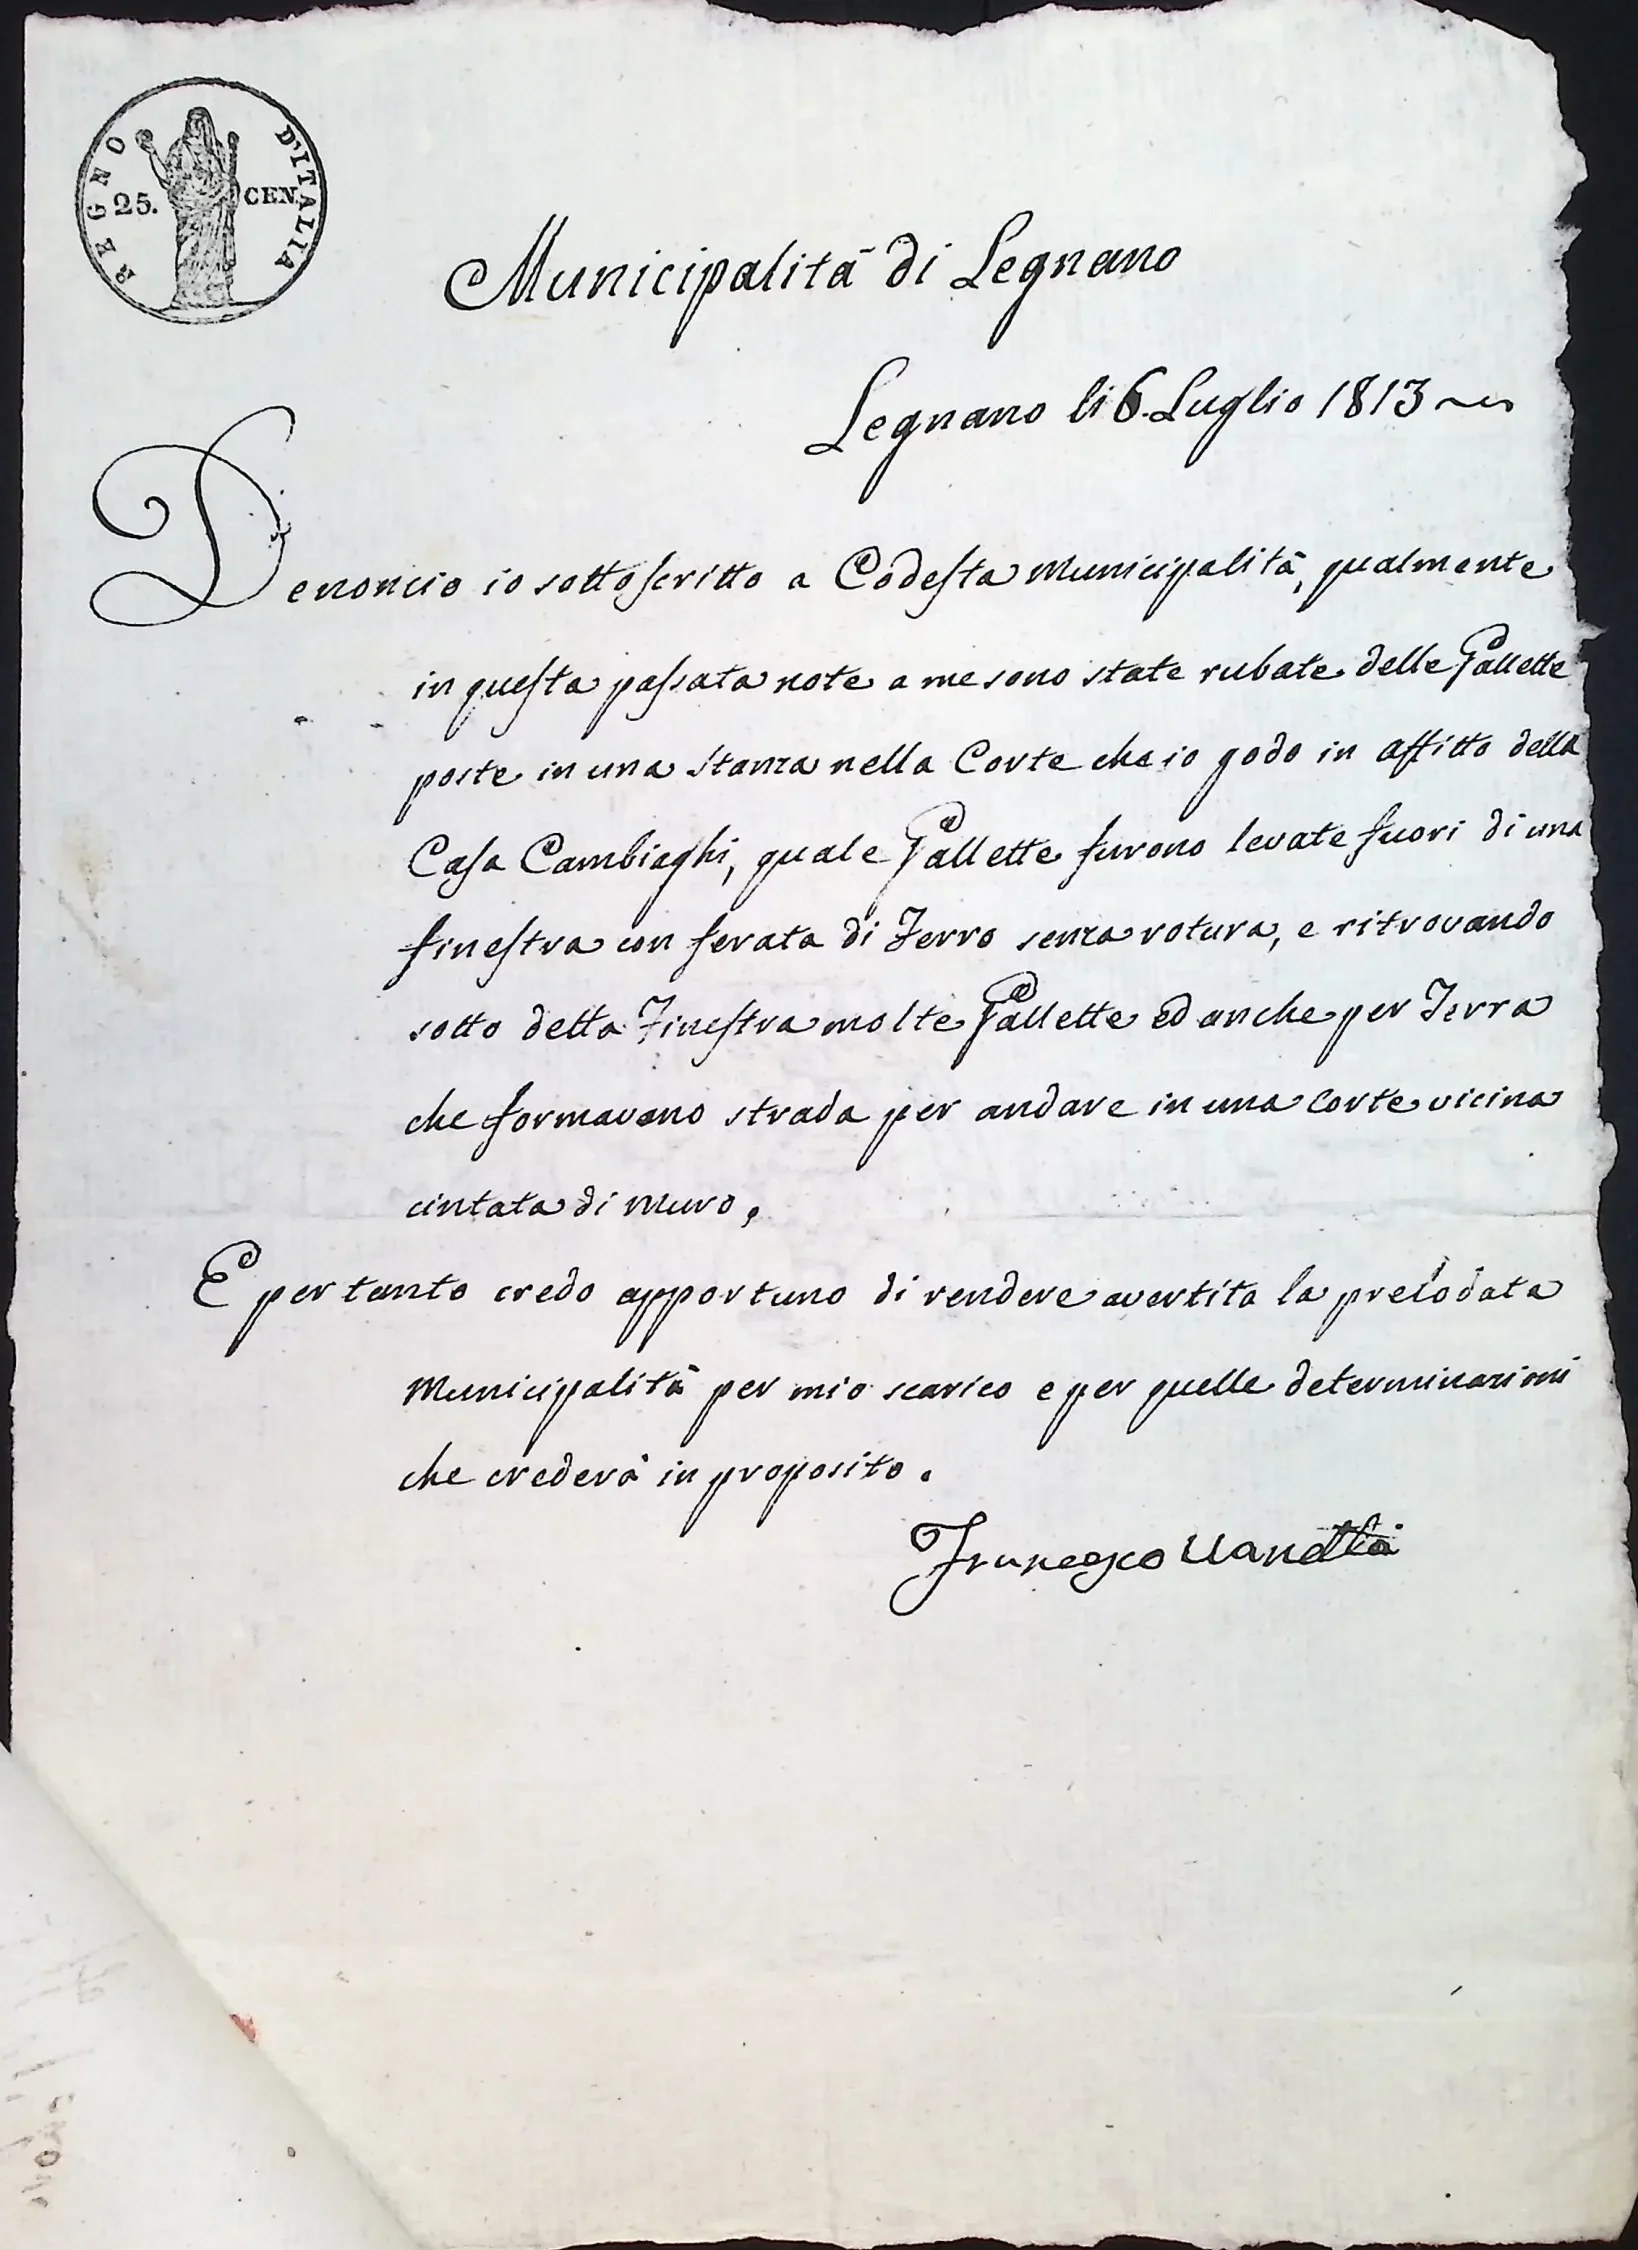 REGNO D'ITALIA
25. CEN.
Municipalità di Legnano
Legnano li 6. Luglio 1813
Denoncio io sottoscritto a Codesta Municipalità, qualmente
in questa passata note a me sono state rubate delle Gallette
poste in una stanza nella Corte che io godo in affitto della
Casa Cambiaghi, quale Gallette furono levate fuori di una
finestra con ferata di Ferro senza rotura, e ritrovando
sotto detta Finestra molte Gallette ed anche per Terra
che formavano strada per andare in una Corte vicina
cintata di muro.
E per tanto credo apportuno di rendere avertita la prelodata
Municipalità per mio scarico e per quelle determinazioni
che crederà in proposito.
Francesco